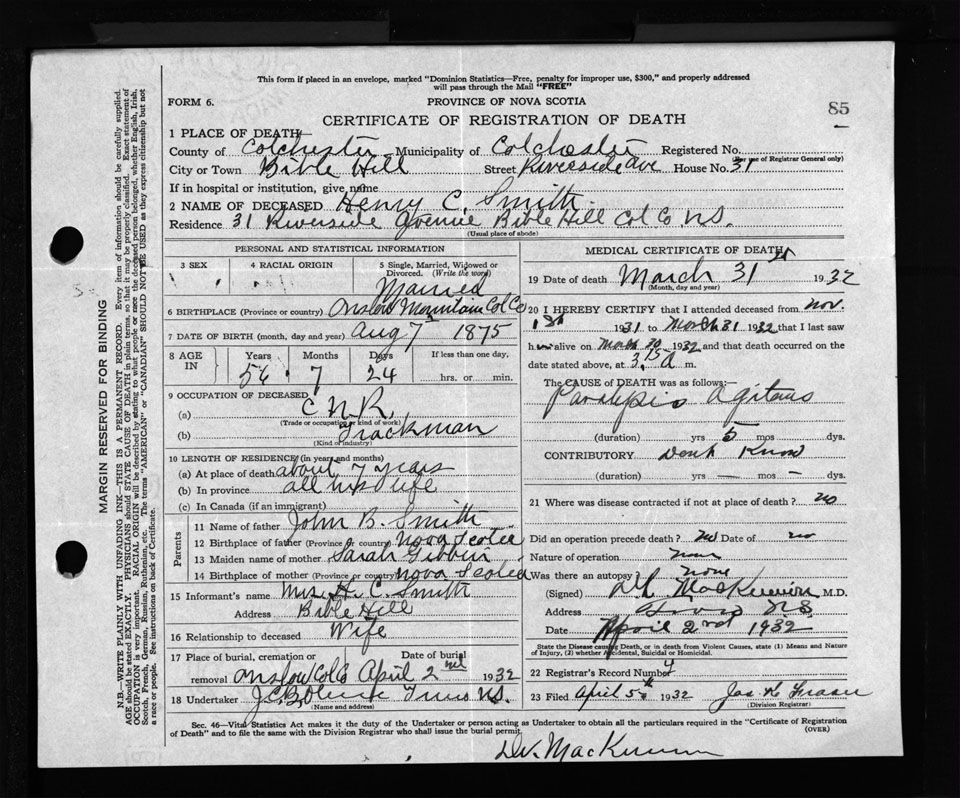 This form if placed in an envelope, marked "Dominion Statistics—Free, penalty for improper use, $300," and properly addressed
will pass through the Mail "FREE"
FORM 6.
PROVINCE OF NOVA SCOTIA
85
CERTIFICATE OF REGISTRATION OF DEATH
1 PLACE OF DEATH
County of Colchester Municipality of Colchester Registered No.
(For use of Registrar General only)
City or Town Bible Hill Street Riverside Ave House No. 31
If in hospital or institution, give name
2 NAME OF DECEASED Henry C. Smith
Residence 31 Riverside Avenue Bible Hill Col Co NS.
(Usual place of abode)
PERSONAL AND STATISTICAL INFORMATION
3 SEX
4 RACIAL ORIGIN
5 Single, Married, Widowed or
Divorced. (Write the word)
Married
6 BIRTHPLACE (Province or country) Onslow Mountain Col Co
7 DATE OF BIRTH (month, day and year) Aug 7 1875
8 AGE IN
Years Months Days If less than one day,
56 7 24 hrs. or min.
9 OCCUPATION OF DECEASED
(a) C N R,
(Trade or occupation or kind of work)
(b) Trackman
(Kind of industry)
10 LENGTH OF RESIDENCE (in years and months)
(a) At place of death about 7 years
(b) In province all his life
(c) In Canada (if an immigrant)
Parents
11 Name of father John B. Smith
12 Birthplace of father (Province or country) Nova Scotia
13 Maiden name of mother Sarah
14 Birthplace of mother (Province or country) Nova Scotia
15 Informant's name Mrs H. C. Smith
Address Bible Hill
16 Relationship to deceased Wife
17 Place of burial, cremation or Date of burial
removal Onslow Col Co April 2nd 1932
18 Undertaker J.C.B. Truro N.S.
(Name and address)
MEDICAL CERTIFICATE OF DEATH
19 Date of death March 31st 1932
(Month, day and year)
20 I HEREBY CERTIFY that I attended deceased from Nov.
1st 1931 to March 31 1932 that I last saw
him alive on March 1932 and that death occurred on
date stated above, at 3.15 a m.
The CAUSE of DEATH was as follows:
Paralysis Agitans
(duration) yrs 5 mos dys.
CONTRIBUTORY Dont Know
(duration) yrs — mos — dys.
21 Where was disease contracted if not at place of death? no
Did an operation precede death? no Date of no
Nature of operation none
Was there an autopsy? none
(Signed) MacKinnon M.D.
Address Truro N.S.
Date April 2nd 1932
State the Disease causing Death, or in death from Violent Causes, state (1) Means and Nature
of Injury, (2) whether Accidental, Suicidal or Homicidal.
22 Registrar's Record Number
23 Filed April 5th 1932 Jas K Fraser
(Division Registrar)
Sec. 46—Vital Statistics Act makes it the duty of the Undertaker or person acting as Undertaker to obtain all the particulars required in the "Certificate of Registration
of Death" and to file the same with the Division Registrar who shall issue the burial permit.
(OVER)
MacKinnon
MARGIN RESERVED FOR BINDING
N.B.—WRITE PLAINLY WITH UNFADING INK—THIS IS A PERMANENT RECORD. Every item of information should be carefully supplied.
AGE should be stated EXACTLY. PHYSICIANS should STATE CAUSE OF DEATH in plain terms, so that it may be properly classified. Exact statement of
OCCUPATION is very important. RACIAL ORIGIN will be described by stating to what people or race the deceased person belonged, whether English, Irish,
Scotch, French, German, Russian, Ruthenian, etc. The terms "AMERICAN" or "CANADIAN" SHOULD NOT BE USED as they express citizenship but not
a race or people. See instructions on back of Certificate.